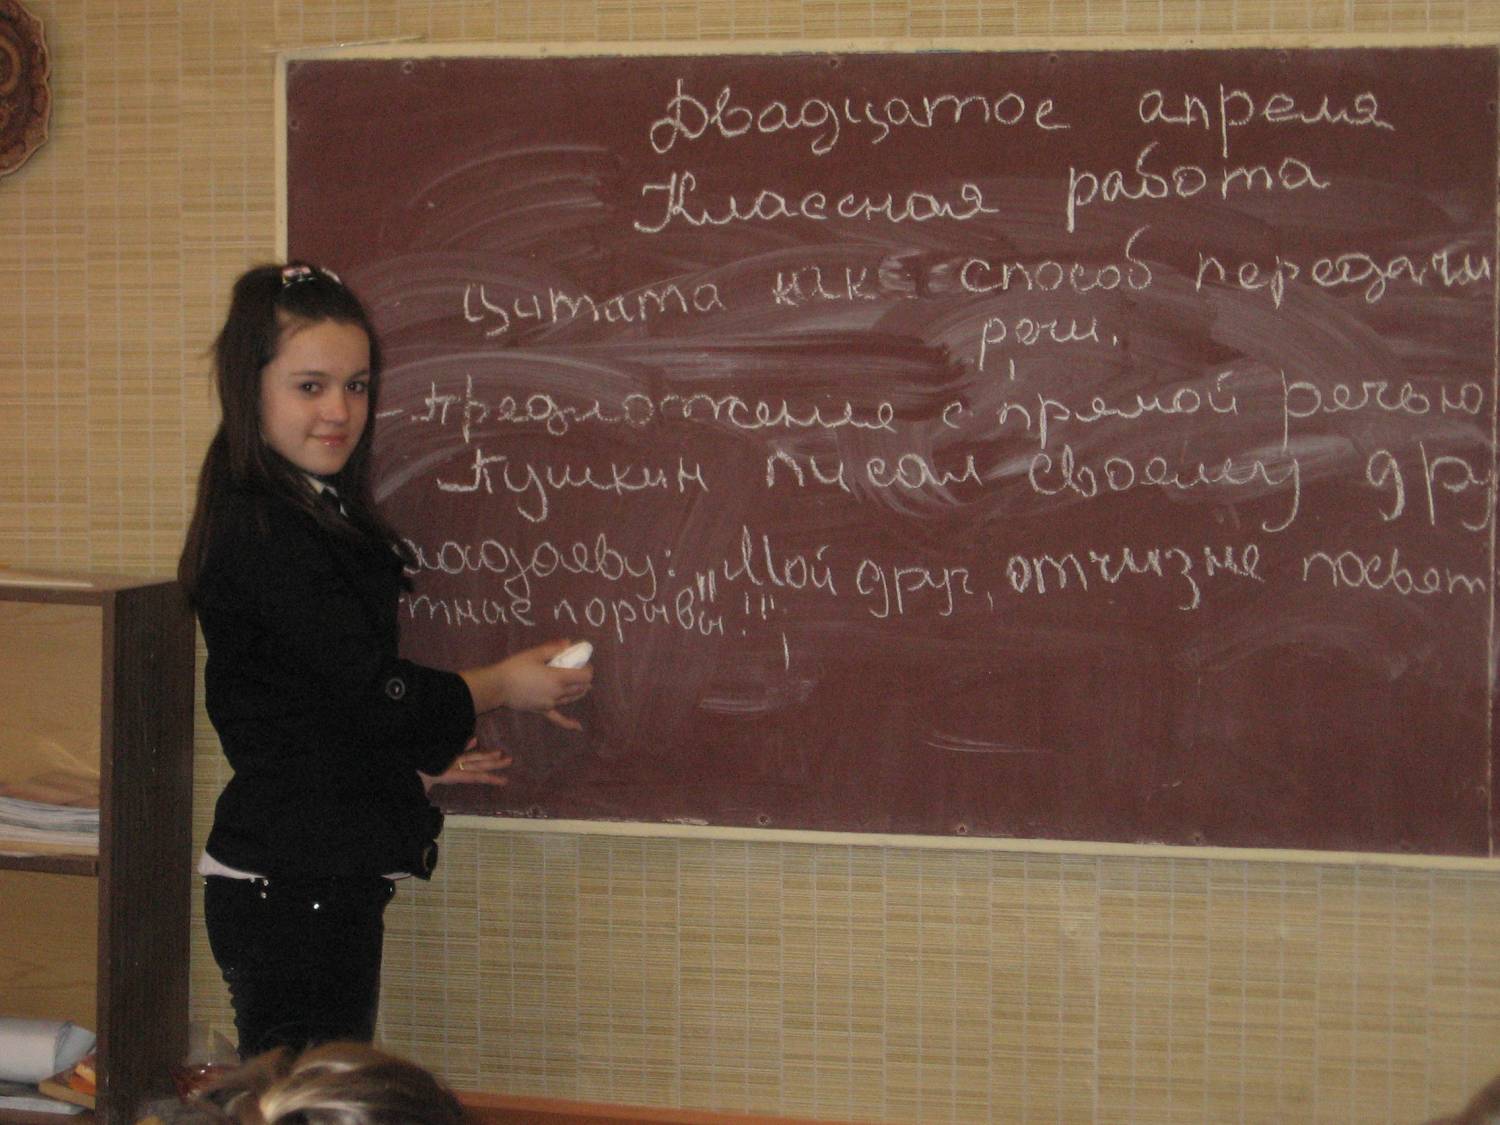 Двадцатое апреля
Классная работа
Цитата как способ передачи
речи.
- Предложение с прямой речью
Пушкин писал своему дру
аадаеву: „Мой друг, отчизне посвят
тные порывы!"